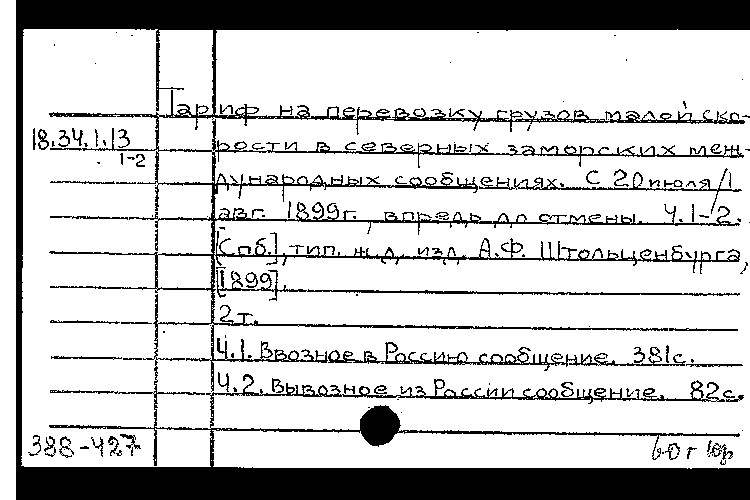 Тариф на перевозку грузов малой ско-
18.34.1.13
1-2
рости в северных заморских меж-
дународных сообщениях. С 20 июля/1
авг. 1899г., впредь до отмены. Ч.1-2.
[Спб.], тип. ж.д. изд. А.Ф. Штольценбурга,
[1899].
2т.
Ч.1. Ввозное в Россию сообщение. 381с.
Ч.2. Вывозное из России сообщение. 82с.
388-427